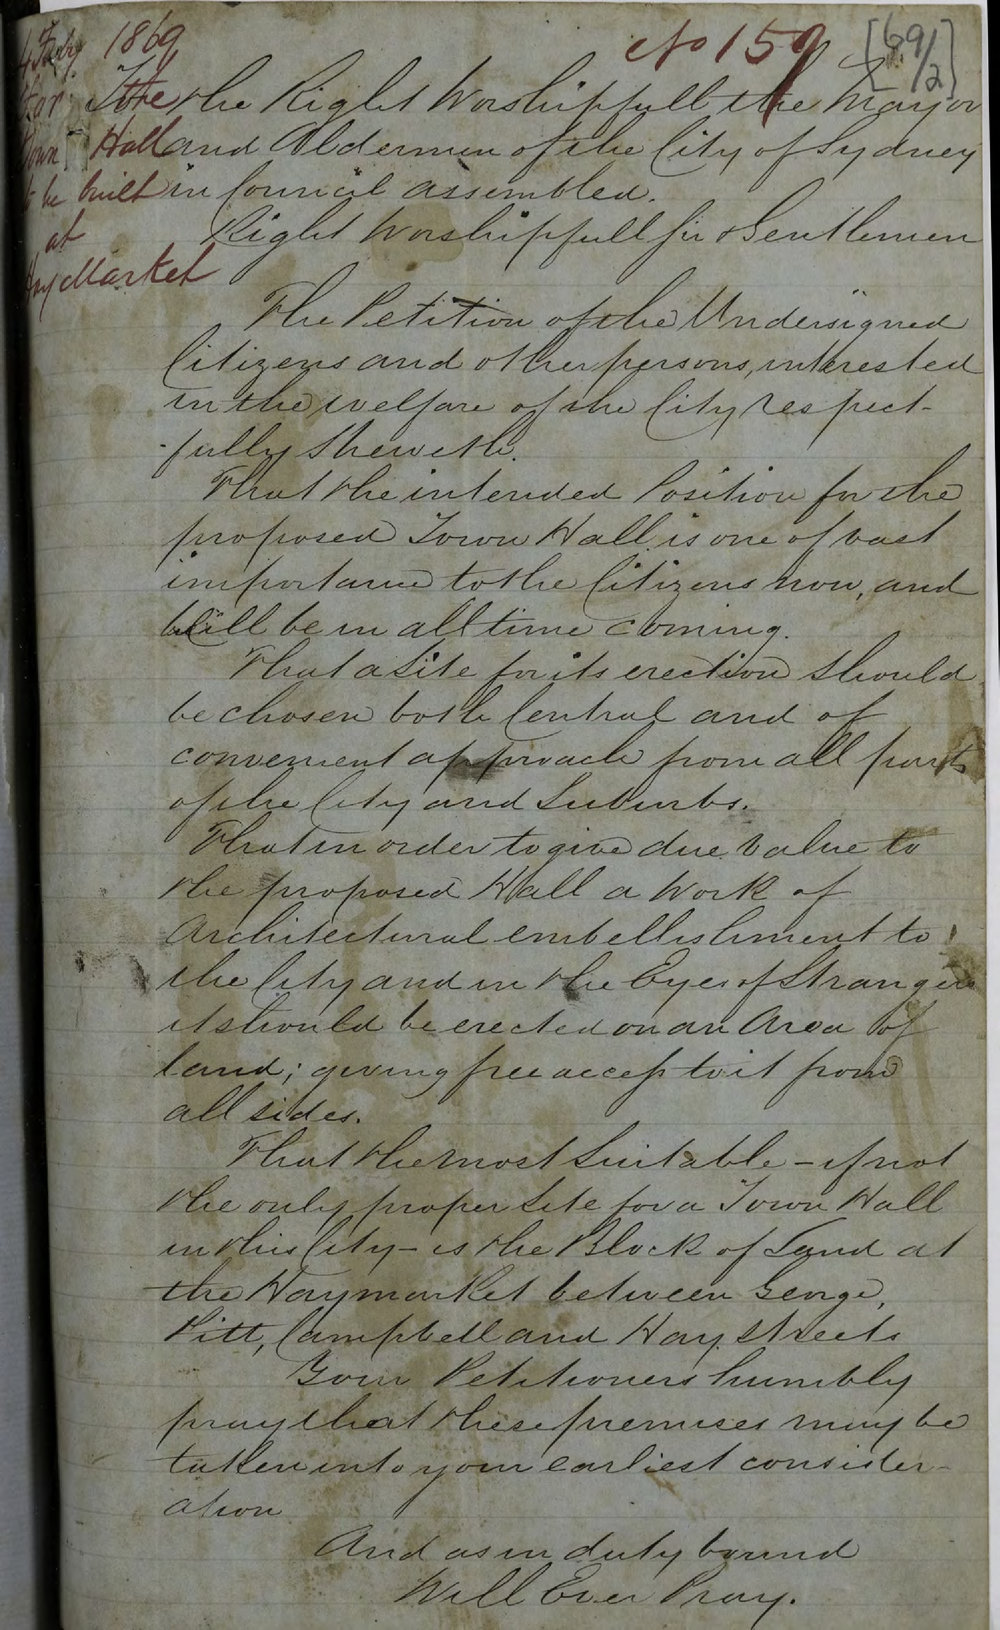 4 July 1869
No 159
[69/2]
For the
Town Hall
to be built
at
Hay Market
To the Right Worshipfull the Mayor
and Aldermen of the City of Sydney
in Council assembled.
Right Worshipfull Sir & Gentlemen
The Petition of the Undersigned
Citizens and other persons, interested
in the welfare of the City respect-
-fully Sheweth.
That the intended Position for the
proposed Town Hall is one of vast
importance to the Citizens now, and
Will be in all time coming.
That a Site for its erection should
be chosen both Central and of
convenient approach from all parts
of the City and Suburbs.
That in order to give due Value to
the proposed Hall a Work of
Architectural embellishment to
the City and in the Eyes of Strangers
it should be erected on an Area of
land; giving free access to it from
all sides.
That the most Suitable – if not
the only proper Site for a Town Hall
in this City – is the Block of Land at
the Haymarket between George,
Pitt, Campbell and Hay Streets
Your Petitioners humbly
pray that these premises may be
taken into your earliest consider-
ation
And as in duty bound
Will Ever Pray.